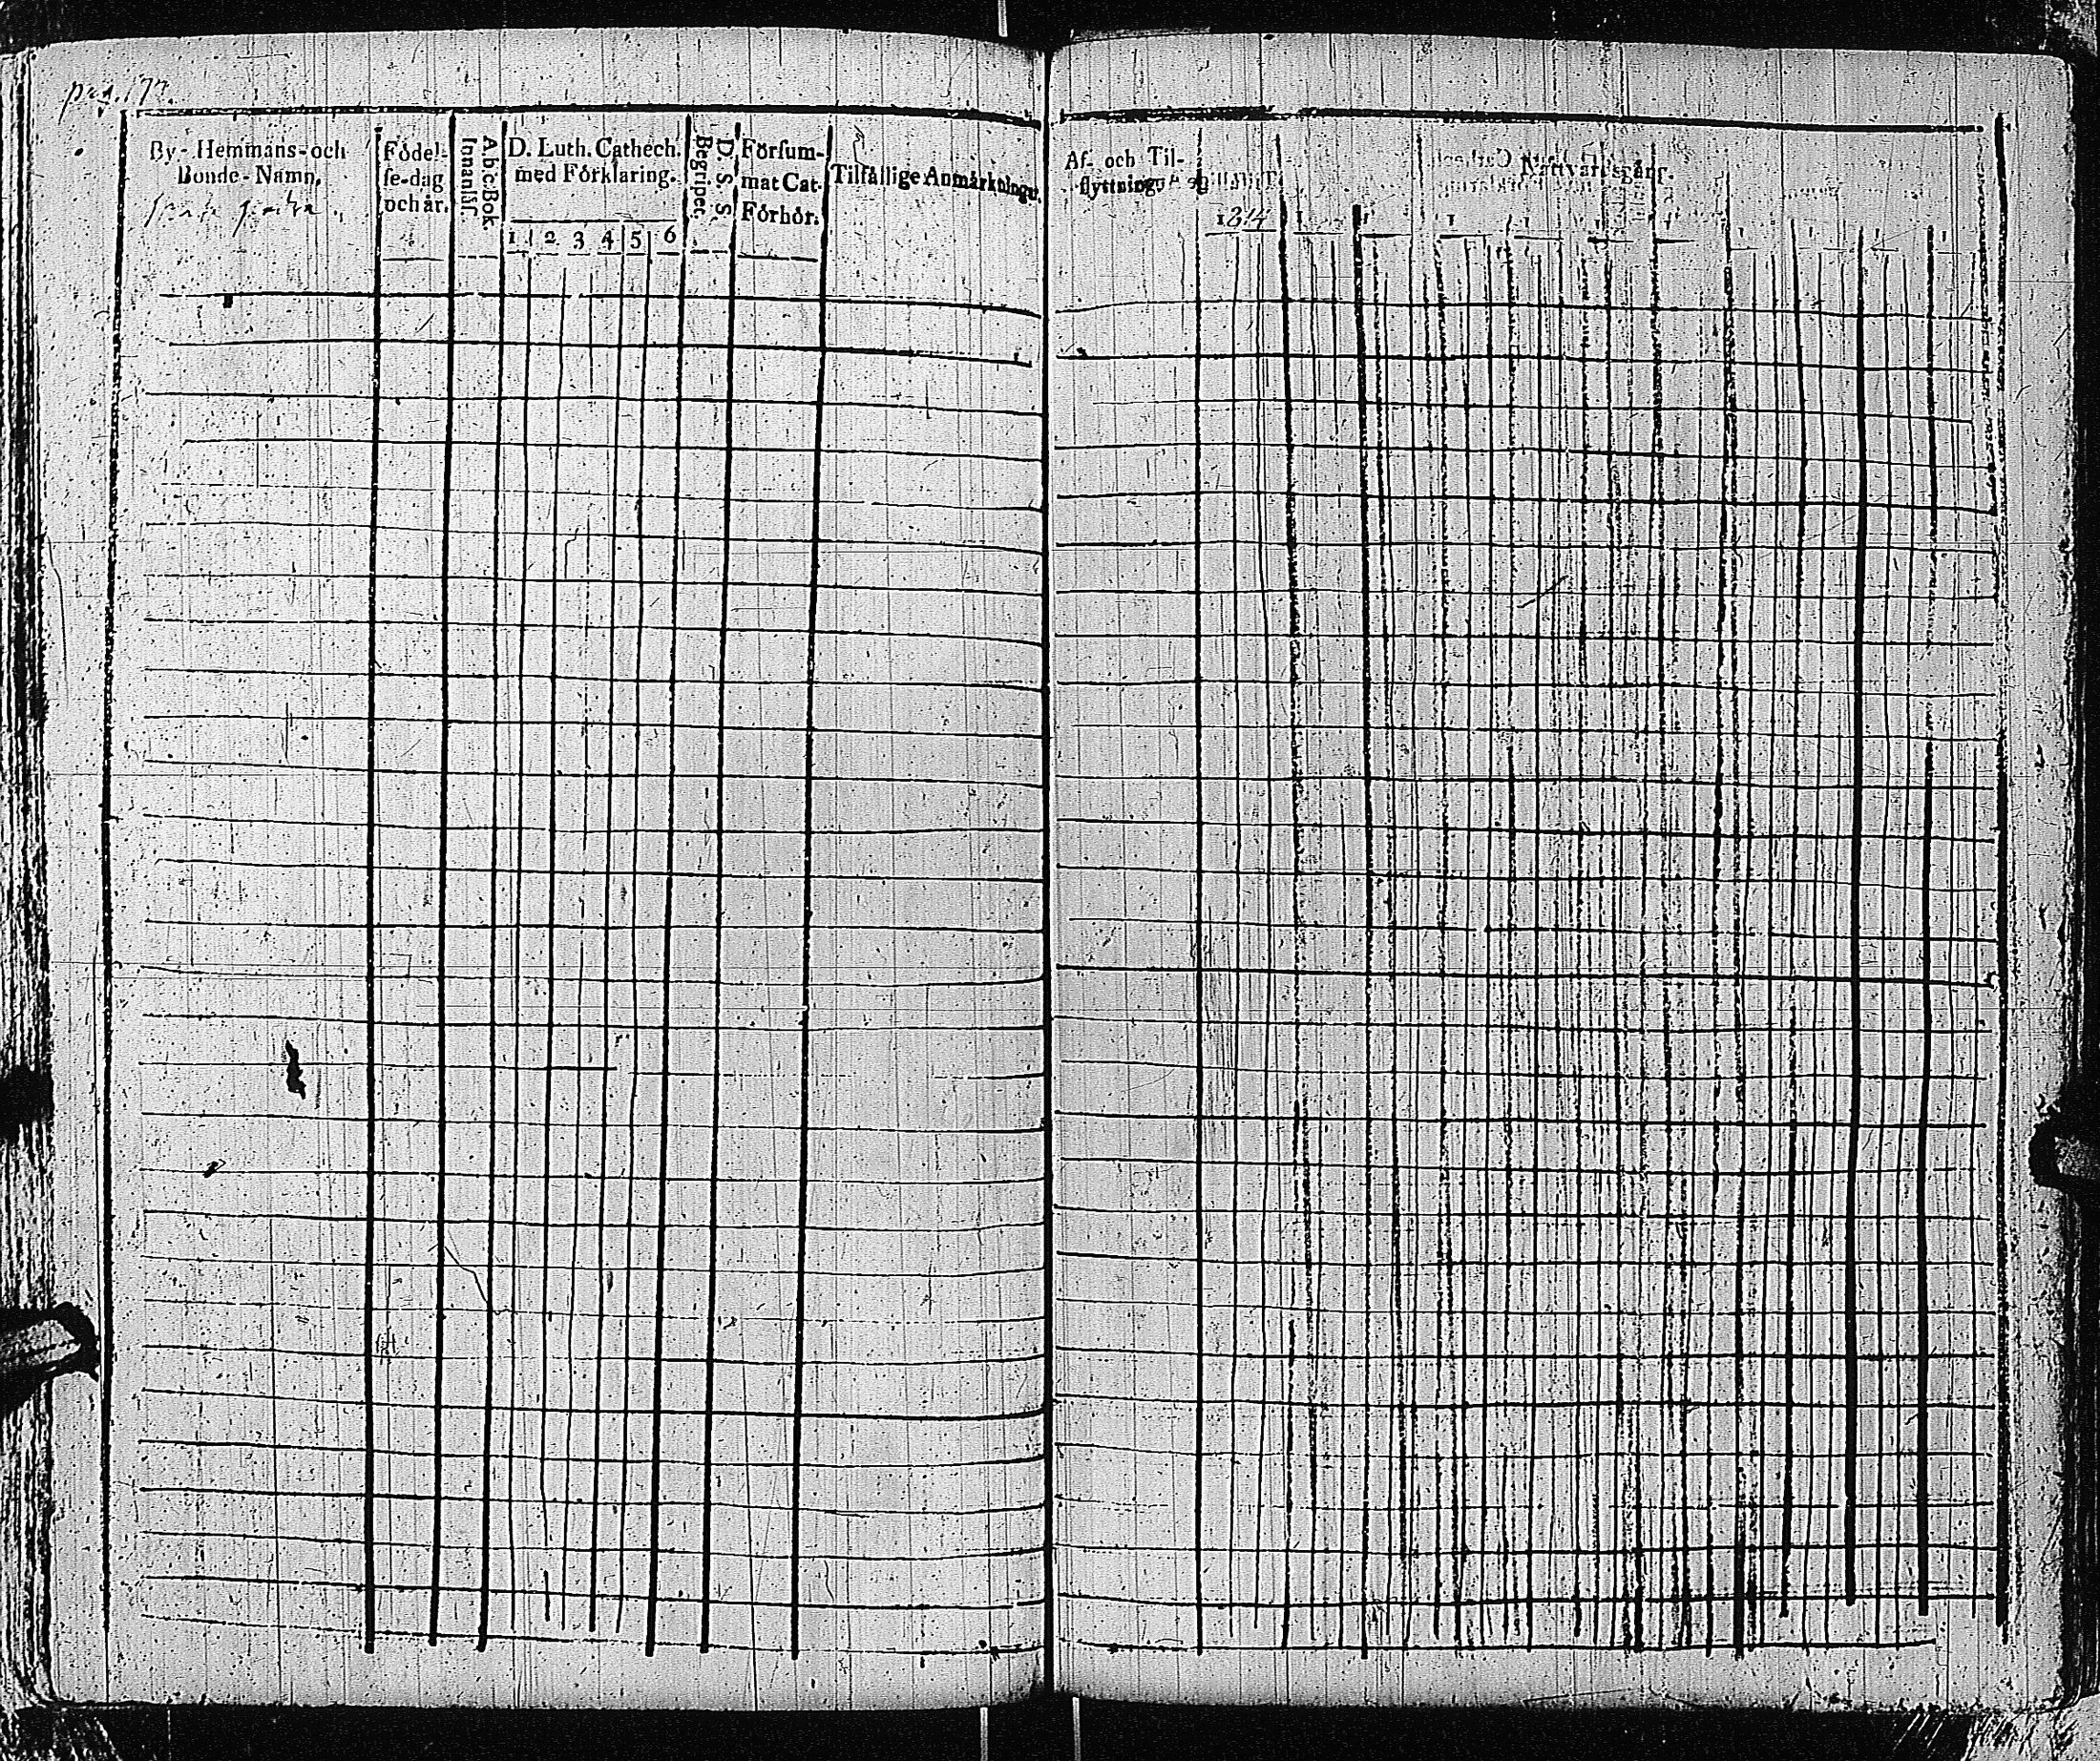 pag. 177.
By- Hemmans- och
Bonde-Namn.
Födel-
se-dag
och år.
A.b.c. Bok.
Innanläs.
D. Luth. Cathech.
med Förklaring.
1 2 3 4 5 6
D. S. S.
Begriper.
Förſum-
mat Cat.
Förhör.
Tilfällige Anmärkningar.
Af- och Til-
flyttning.
Nattvardsgång.
1814
1 1 1 1 1 1 1 1 1 1